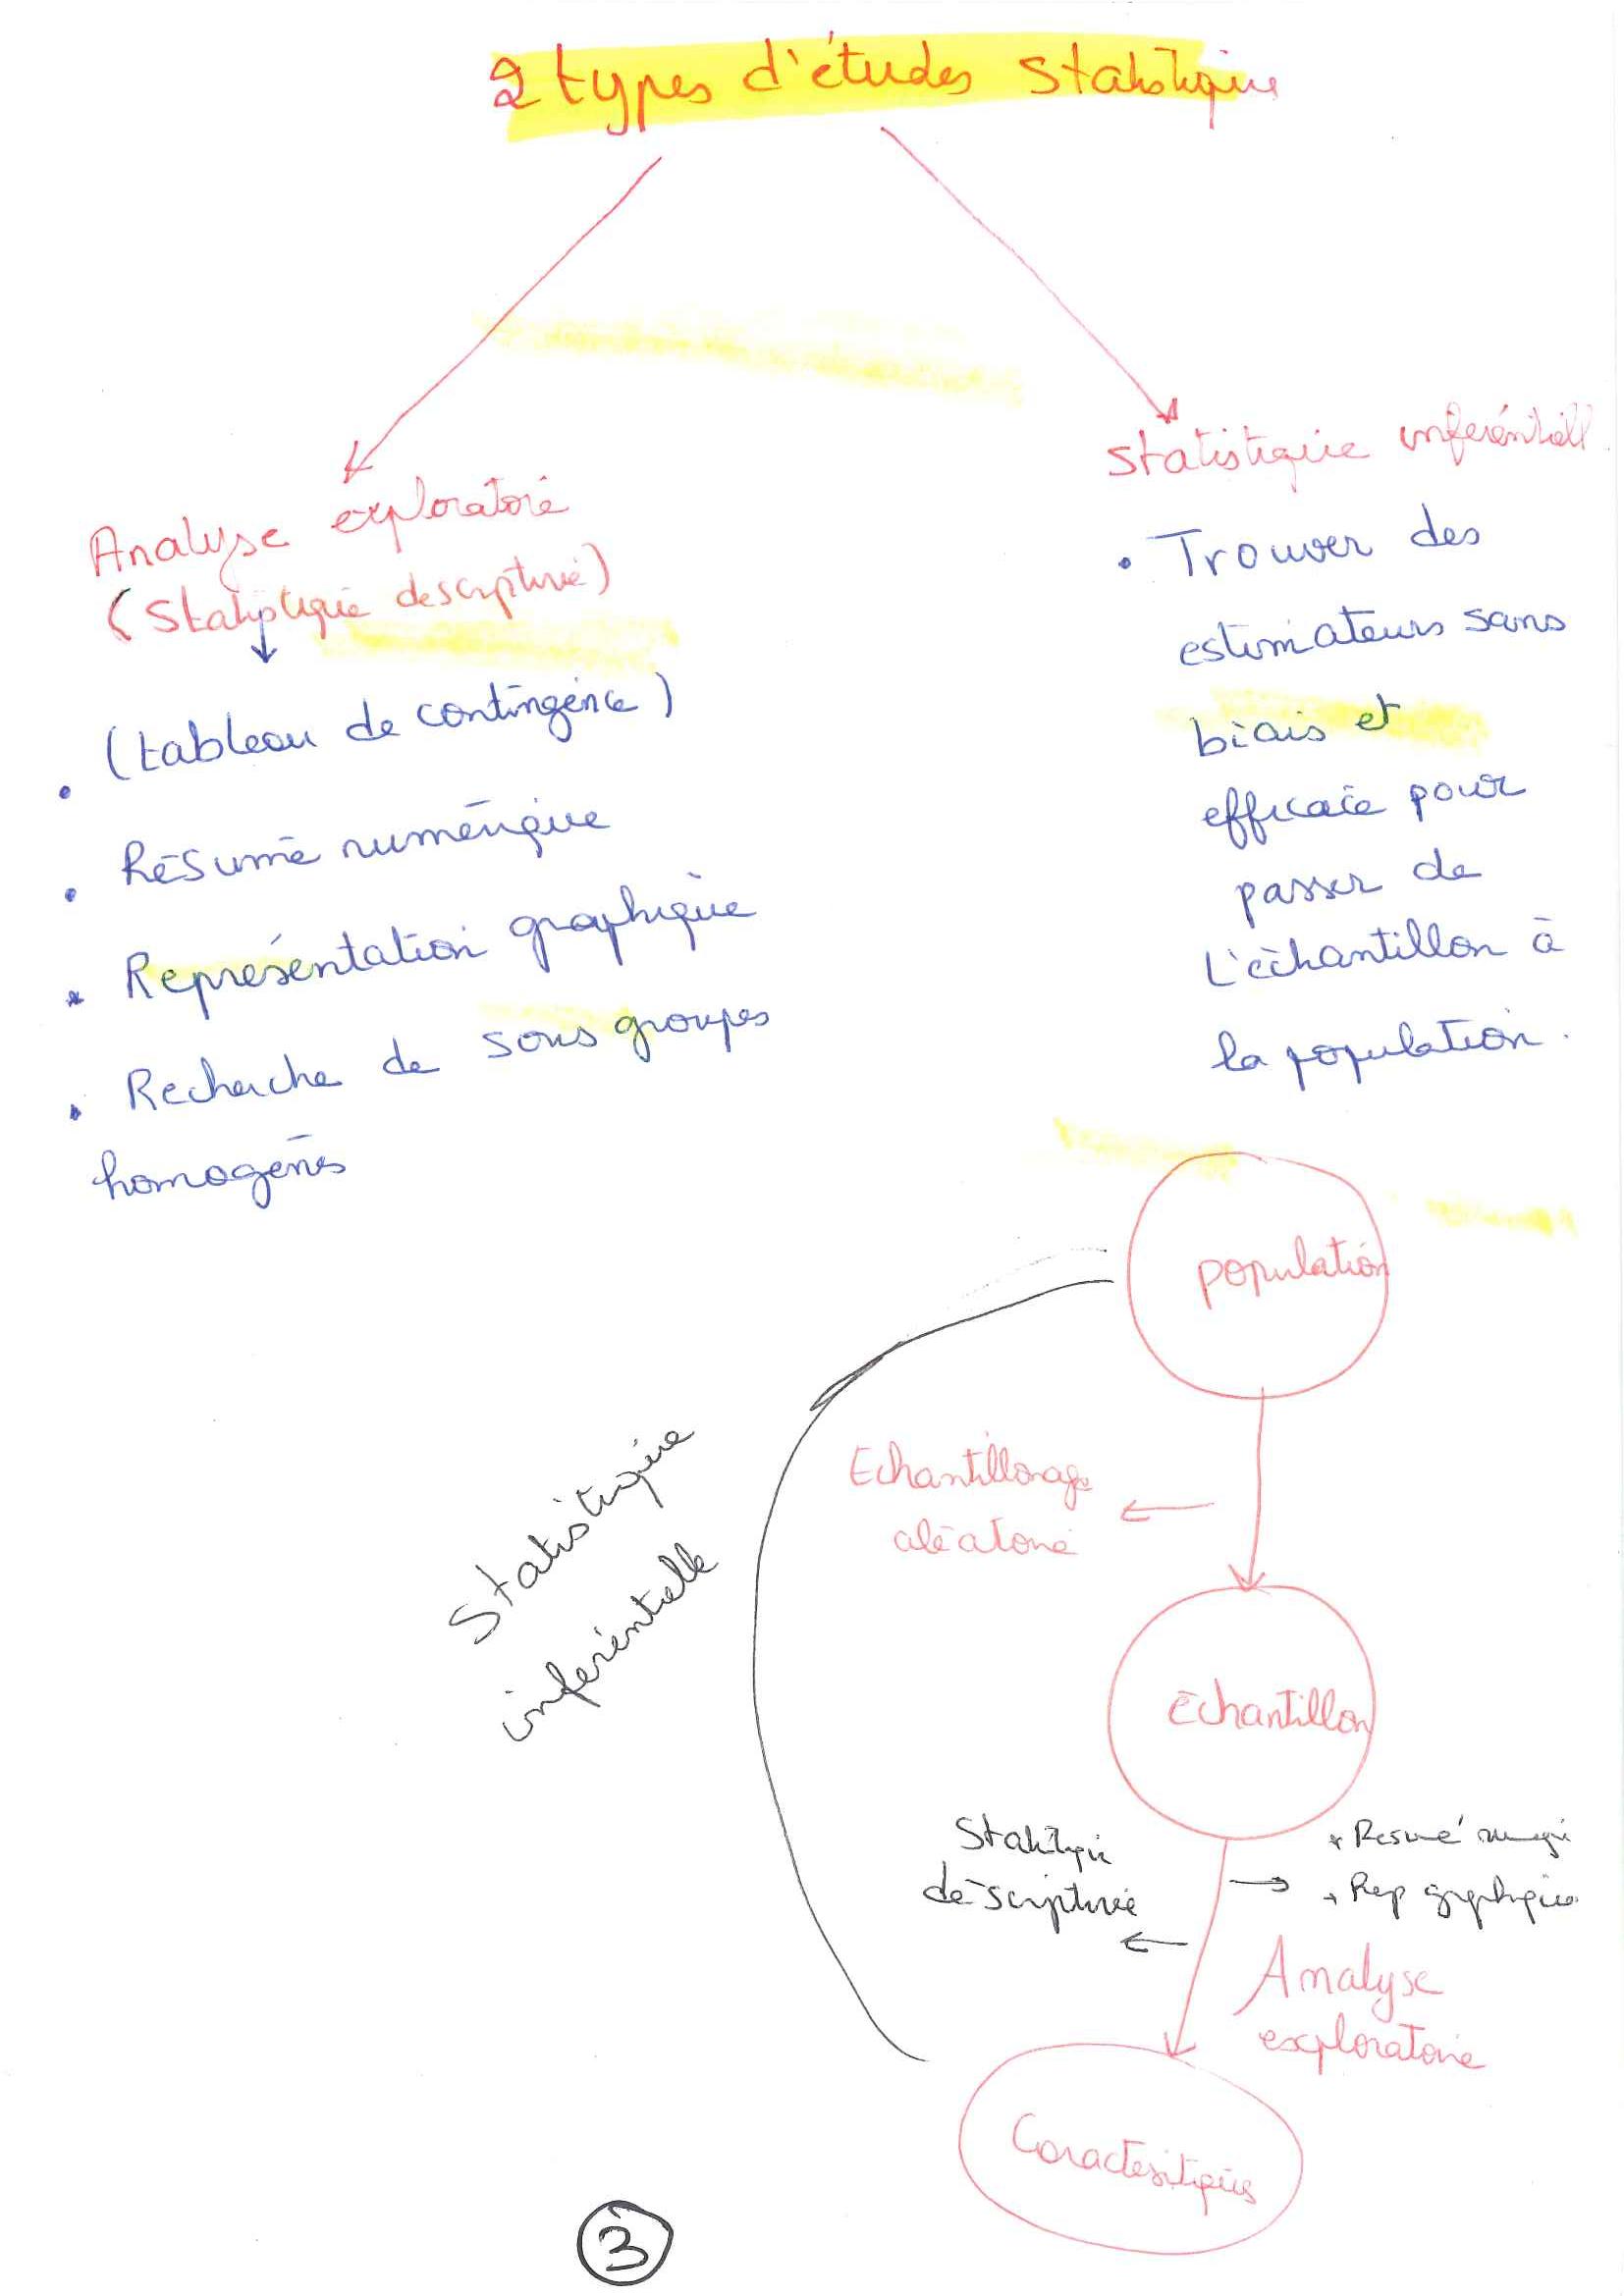 2 types d'études statistique
Analyse exploratoire
(Statistique descriptive)
(tableau de contingence)
. Résumé numérique
. Représentation graphique
. Recherche de sous groupes
homogènes
statistique inferéntiell
. Trouver des
estimateurs sans
biais et
efficace pour
passer de
L'échantillon à
la population.
population
Echantillonage
aléatoire
Statistique
inferéntielle
échantillon
Statistique
déscriptive
* Resumé
+ Rep graphique
Analyse
exploratoire
Caracteristiques
3